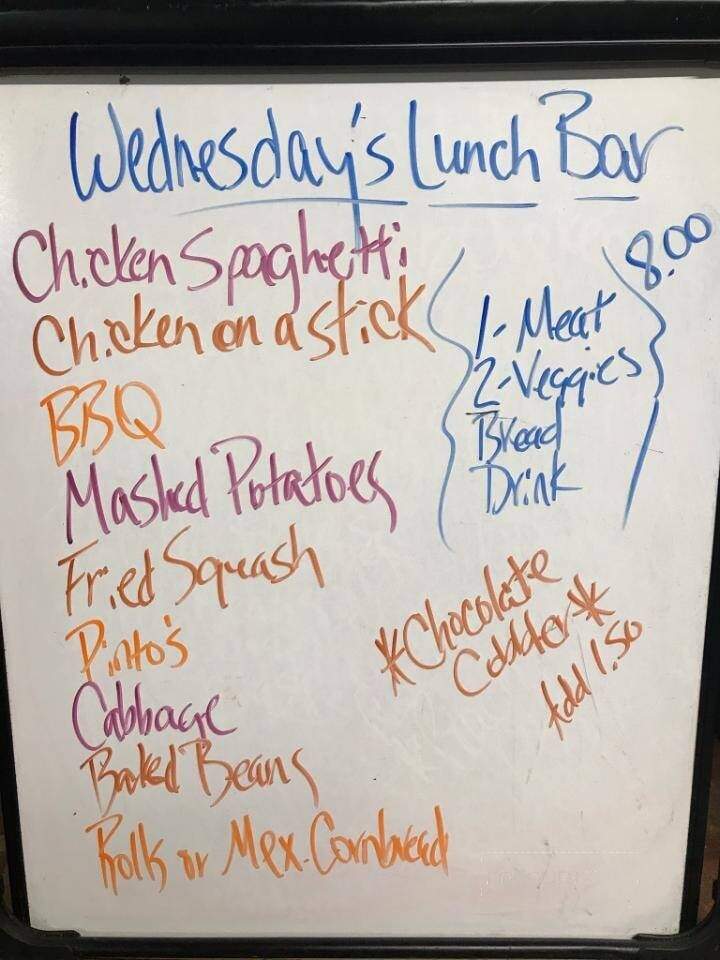 Wednesday's Lunch Bar
Chicken Spaghetti
Chicken on a stick
BBQ
Mashed Potatoes
Fried Squash
Pinto's
Cabbage
Baked Beans
Rolls or Mex. Cornbread
1-Meat
2-Veggies
Bread
Drink
8.00
*Chocolate
Cobbler*
Add 1.50